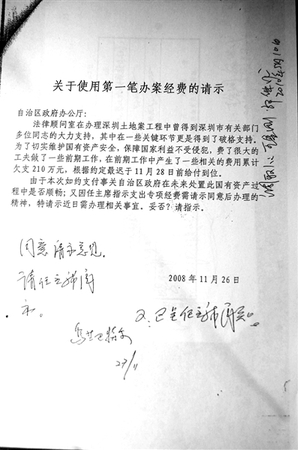 关于使用第一笔办案经费的请示
自治区政府办公厅：
法律顾问室在办理深圳土地案工程中曾得到深圳市有关部门
多位同志的大力支持，其中在一些关键环节更是得到了破格支持。
为了切实维护国有资产安全，保障国家利益不受侵犯，费了很大的
工夫做了一些前期工作，在前期工作中产生了一些相关的费用累计
欠支210万元，根据约定最迟于11月28日前给付到位。
由于本次如约支付事关自治区政府在未来处置此国有资产过
程中是否顺畅；又因任主席指示支出专项经费需请示同意后办理的
精神，特请示近日需办理相关事宜。妥否？请指示。
2008年11月26日
同意请示意见
请任主席阅
示。
27/11